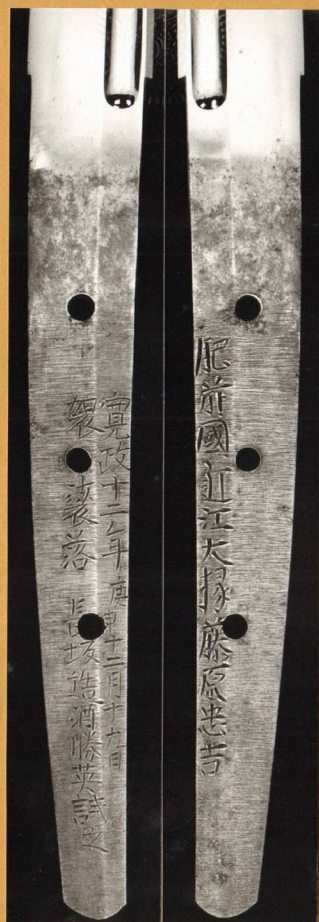 肥前國近江大掾藤原忠吉
寛政十二年庚申十二月十九日
袈裟落 長坂造酒勝英試之